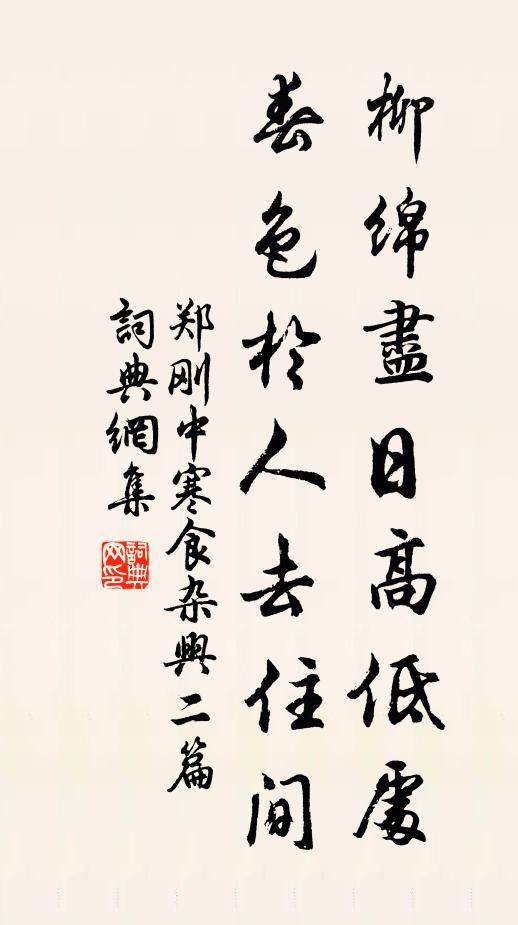 柳绵盡日高低處
春色於人去住间
郑刚中寒食杂興二篇
詞典網集
詞典网印